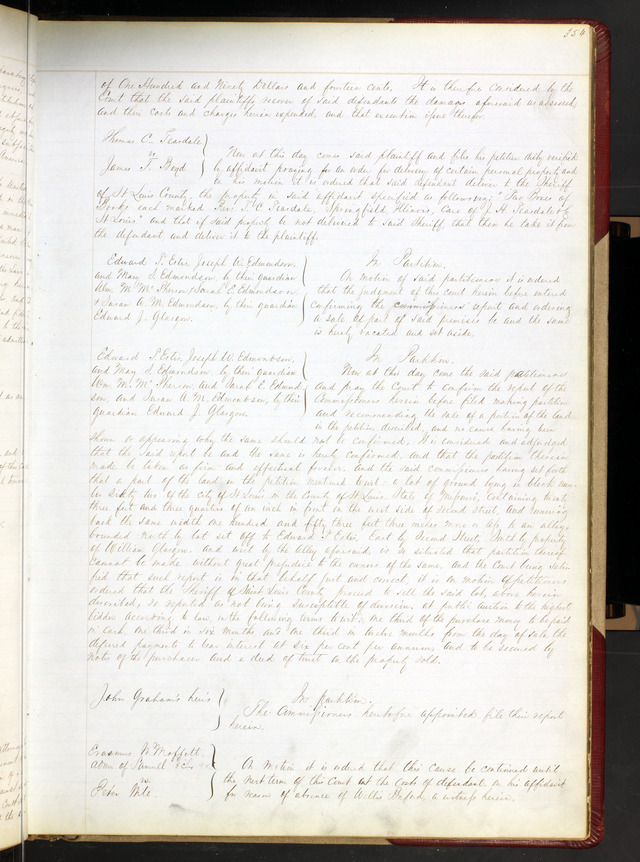 354
of One Hundred and Ninety Dollars and fourteen cents. It is therefore considered by the
Court that the said plaintiffs recover of said defendants the damages aforesaid as assessed
and their costs and charges herein expended, and that execution issue therefor.
Thomas C. Teasdale
vs
James T. Boyd
Now at this day comes said plaintiff and files his petition duly verified
by affidavit praying for an order for delivery of certain personal property and
on his motion it is ordered that said defendant deliver to the Sheriff
of St Louis County, the property in said affidavit specified as follows viz: " Boxes of
Books each marked Rev. T. C. Teasdale, Springfield Illinois, Care of J. H. Teasdale &
St Louis" and that if said property be not delivered to said Sheriff, that then he take it from
the defendant and deliver it to the plaintiff.
Edward J. Joseph W. Edmondson,
and Mary J. Edmondson, by their guardian
Wm M. McPherson, & Sarah E. Edmondson,
& Susan A. M. Edmondson, by their guardian
Edward J. Glasgow.
In Partition.
On motion of said petitioners it is ordered
that the judgment of the court herein before entered
confirming the commissioners' report and ordering
a sale of part of said premises be and the same
is hereby vacated and set aside.
Edward J. Joseph W. Edmondson,
and Mary J. Edmondson, by their guardian
Wm M. McPherson, and Sarah E. Edmond
son, and Susan A. M. Edmondson, by their
guardian Edward J. Glasgow.
In Partition.
Now at this day come the said petitioners
and pray the Court to confirm the report of the
Commissioners herein before filed making partition
and recommending the sale of a portion of the land
in the petition described, and no cause having been
shown or appearing why the same should not be confirmed, It is considered and adjudged
that the said report be and the same is hereby confirmed. And that the partition therein
made be taken as firm and effectual forever. And the said commissioners having set forth
that a part of the land in the petition mentioned to wit: a lot of ground lying in block num
ber Sixty two of the city of St Louis in the County of St Louis, State of Missouri, containing twenty
three feet and three quarters of an inch in front on the west side of second street, and running
back the same width one hundred and fifty three feet three inches more or less to an alley,
bounded North by lot set off to Edward J. East by Second Street, South by property
of William Glasgow, and west by the alley aforesaid, is so situated that partition thereof
cannot be made without great prejudice to the owners of the same. And the Court being satis
fied that such report is in that behalf just and correct, it is on motion of petitioners
ordered that the Sheriff of Saint Louis County proceed to sell the said lot, above herein
described, so reported as not being susceptible of division, at public auction to the highest
bidder according to law, on the following terms to wit: one third of the purchase money to be paid
in cash one third in six months and one third in twelve months from the day of sale, the
deferred payments to bear interest at six per cent per annum and to be secured by
notes of the purchaser and a deed of trust on the property sold.
John Graham's heirs
In partition.
The Commissioners heretofore appointed file their report
herein.
Erasmus W. Moffett
adm of Samuel
vs
Peter
On motion it is ordered that this cause be continued until
the next term of this Court at the costs of defendant, on his affidavit
for reason of absence of Willis a witness herein.